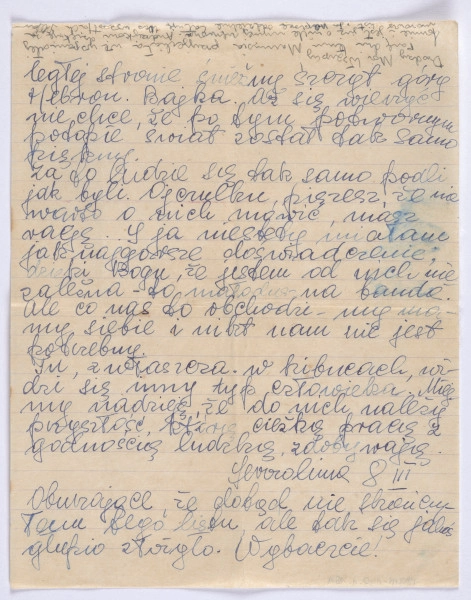 ległej stronie śnieżny szczyt góry
Hebron. Bajka. Aż się wierzyć
nie chce, że po tym potwornym
potopie świat został tak samo
piękny.
Za to ludzie są tak samo podli
jak byli. Ojczulku, piszesz, że nie
warto o nich mówić, masz
rację. I ja niestety miałam
jak najgorsze doświadczenie;
dzięki Bogu, że jestem od nich nie
zależna - to na banda.
Ale co nas to obchodzi - my ma-
my siebie i nikt nam nie jest
potrzebny.
Tu, zwłaszcza w kibucach, wi-
dzi się inny typ człowieka. Miej-
my nadzieję, że do nich należy
przyszłość, którą ciężką pracą z
godnością ludzką, zdobywają.
Jerozolima 8 III
Oburzające, że dotąd nie skończy-
łam tego listu, ale tak się jakoś
głupio złożyło. Wybaczcie!